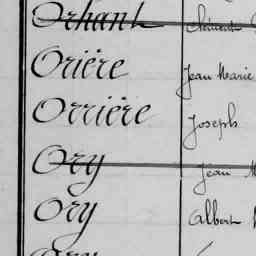 Orhant Clément
Orière Jean Marie
Orrière Joseph
Ory Jean
Ory Albert